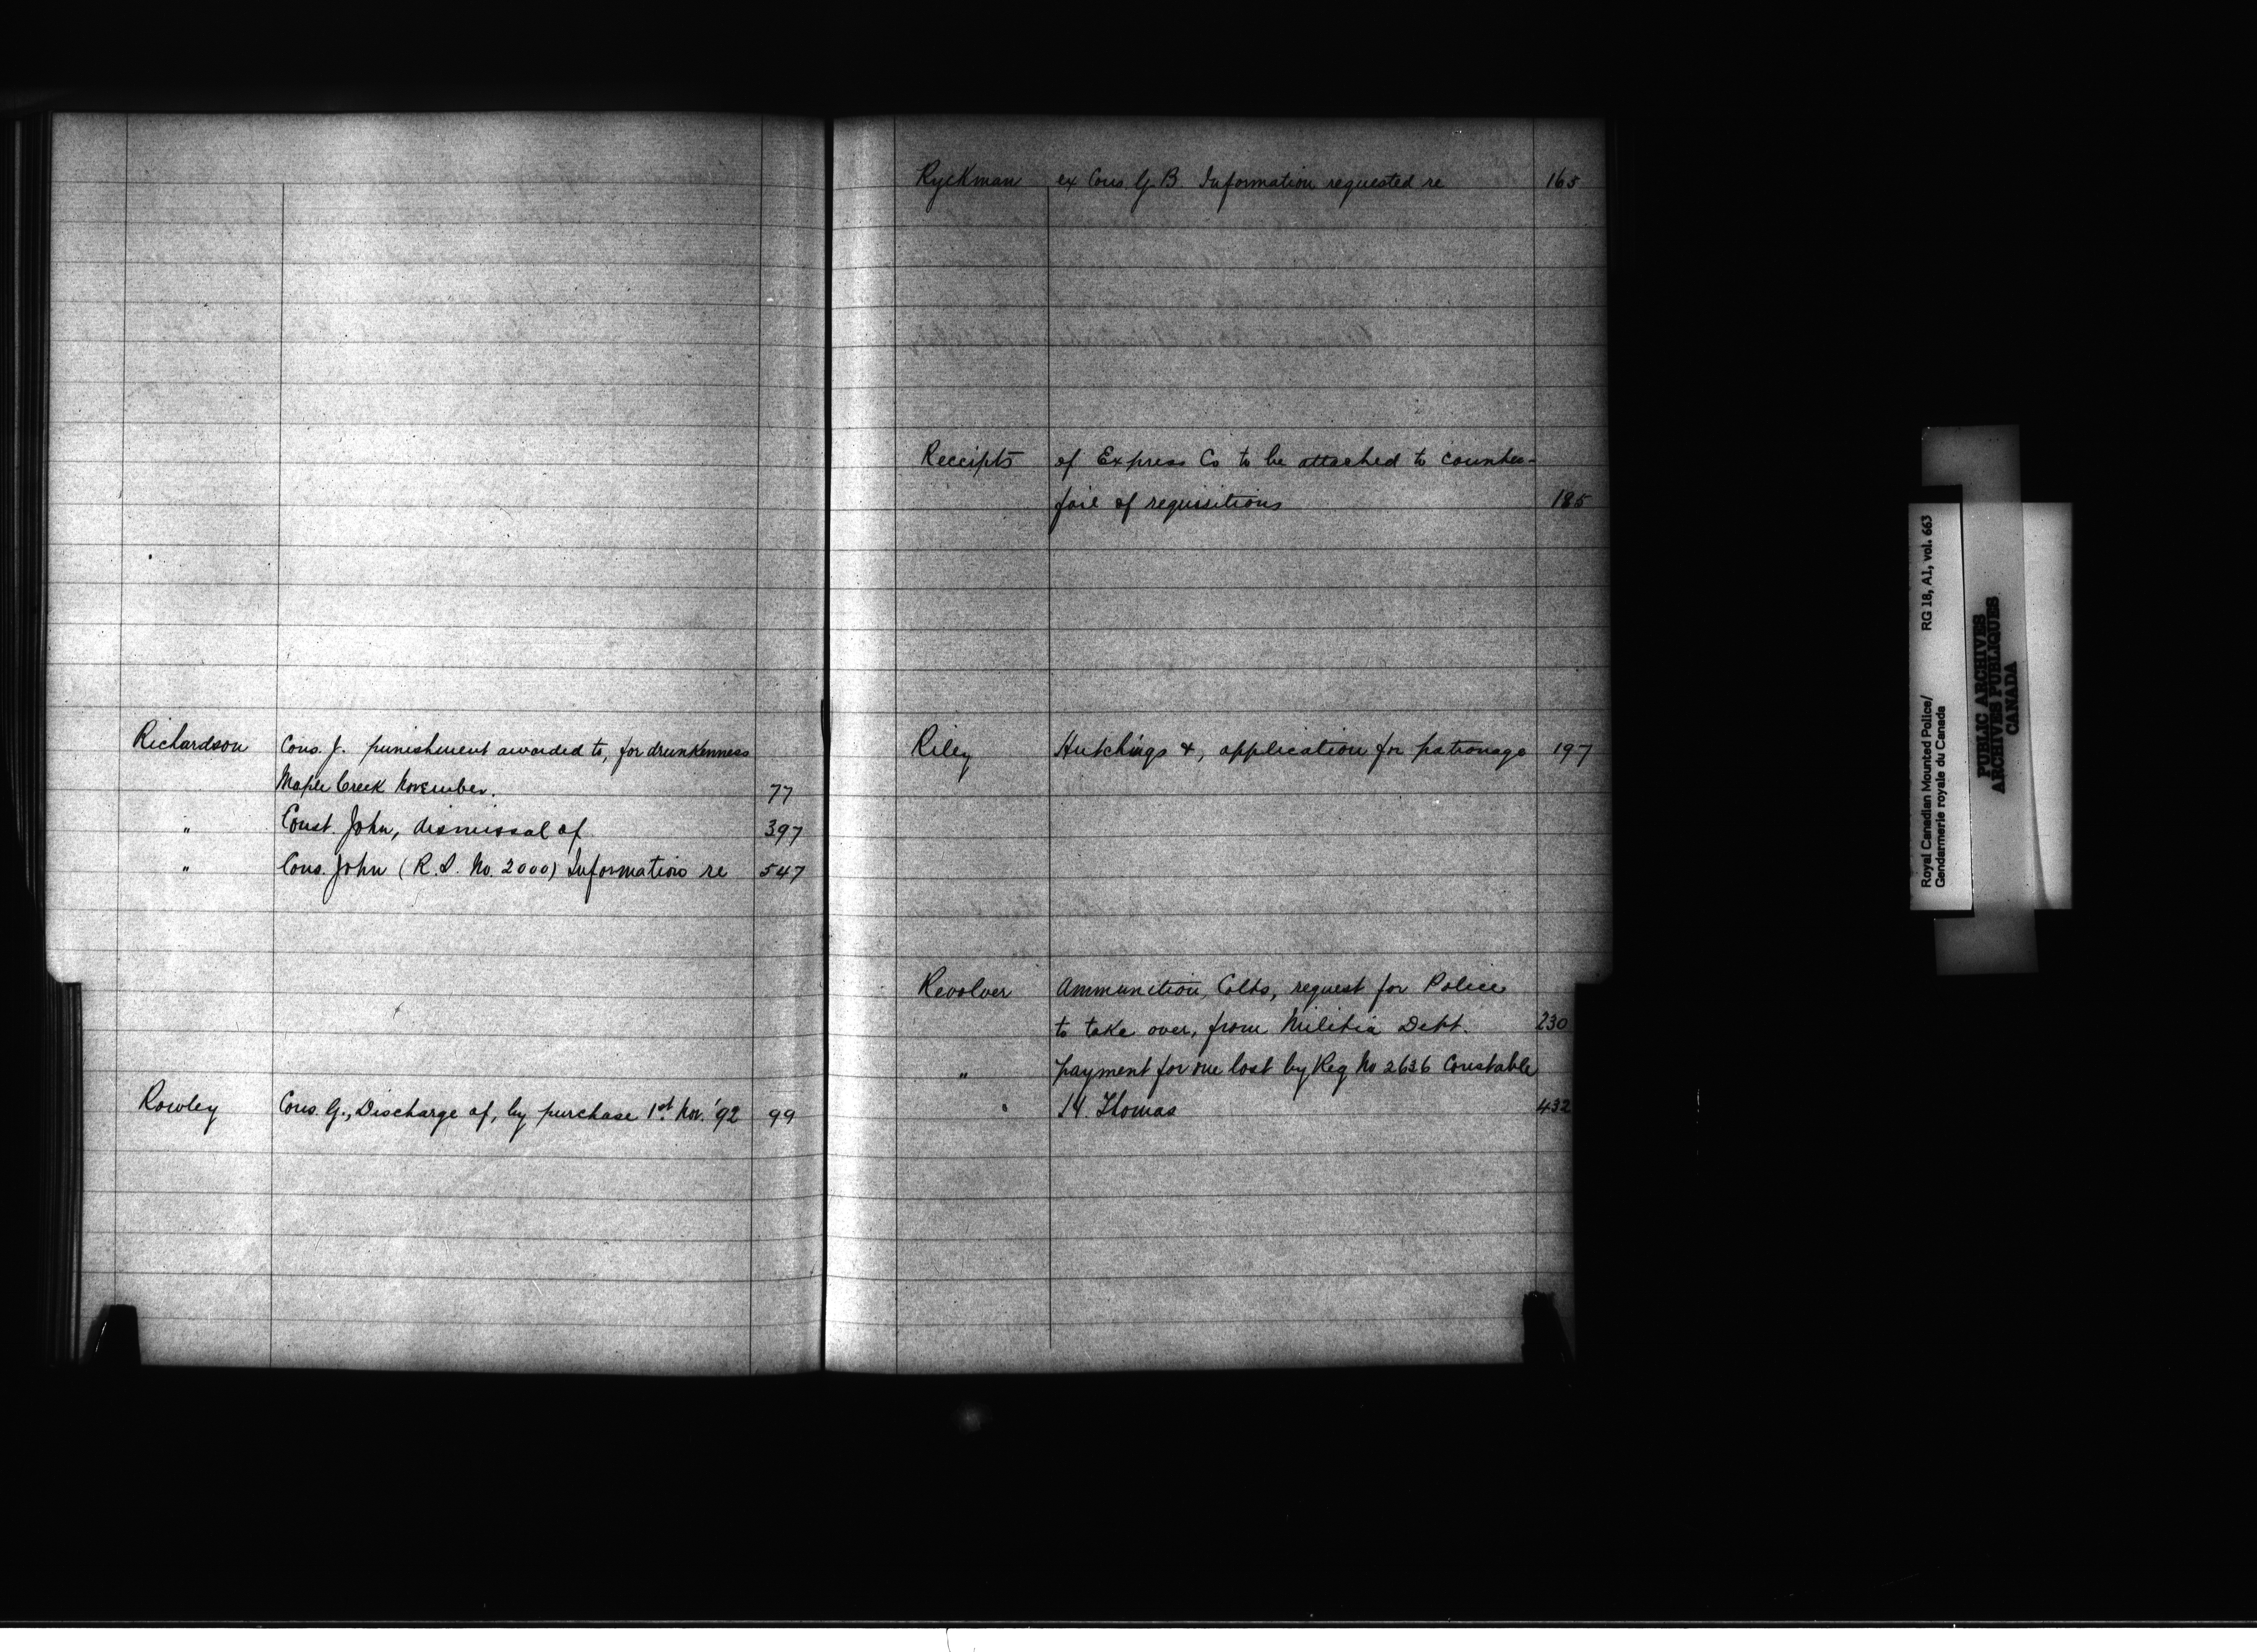 Richardson Cons. J. punishment awarded to, for drunkenness
Maple Creek November. 77
" Const. John, dismissal of 397
" Cons. John (R. S. No. 2000) Information re 547
Rowley Cons. G., Discharge of, by purchase 1st Nov. '92 99
Ryckman ex Cons G. B. Information requested re 165
Receipts of Express Co to be attached to counter-
foil of requisitions 185
Riley Hutchings &, application for patronage 197
Revolver Ammunition, Colts, request for Police
to take over, from Militia Dept. 230
" payment for one lost by Reg No 2636 Constable
" H. Thomas 432
Royal Canadian Mounted Police/ RG 18, A1, vol. 663
Gendarmerie royale du Canada
PUBLIC ARCHIVES
ARCHIVES PUBLIQUES
CANADA